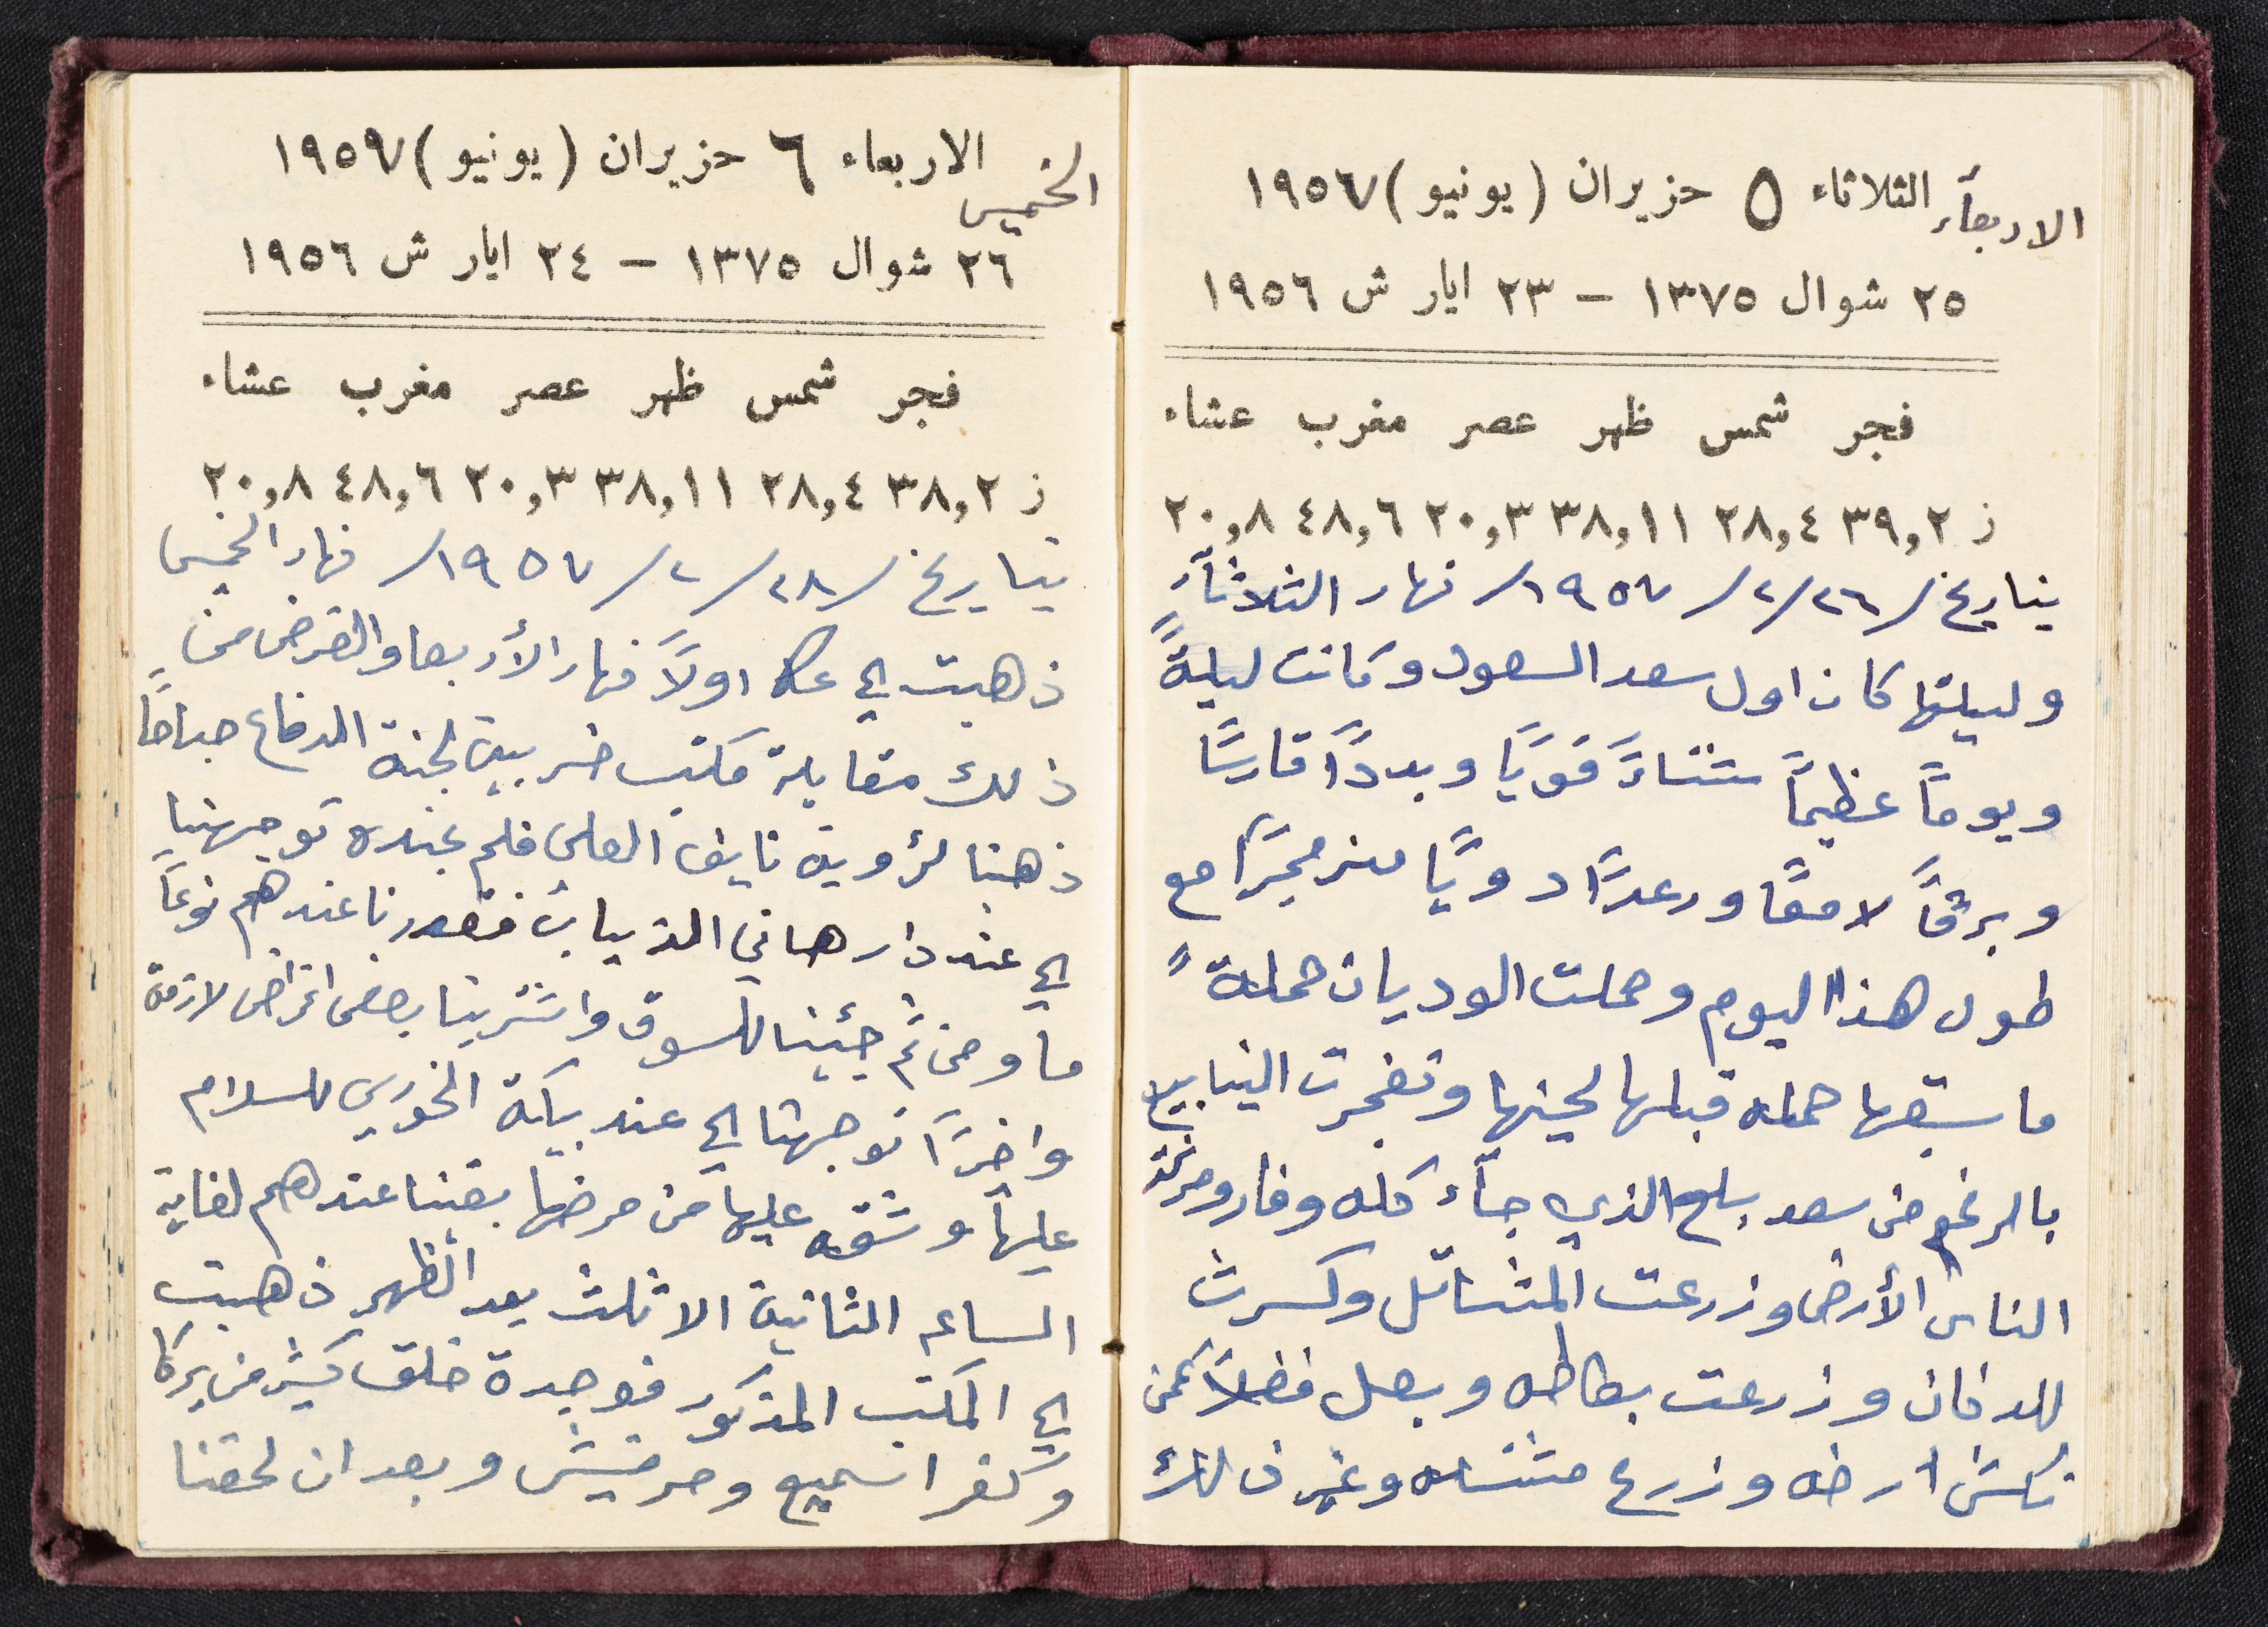 الاربعآء الثلاثاء ٥ حزيران (يونيو) ١٩٥٦٧
٢٥ شوال ١٣٧٥ – ٢٣ ايار ش ١٩٥٦
فجر شمس ظهر عصر مغرب عشاء
ز ٣٩,٢ ٢٨,٤ ٣٨,١١ ٢٠,٣ ٤٨,٦ ٢٠,٨
بتاريخ /٢٦/٢/١٩٥٧/ نهار الثلاثآء
وليلتها كان اول سعد السعود وكانت ليلةً
ويوماً عظيماً شتتاءً قويًا وبردًا قارسًا
وبرقاً لامعًا ورعدًا دويًا مزمجرًا مع
طول هذا اليوم وحملت الوديان حملةً
ما سبقها حمله قبلها لحينها وتفجرت الينابيع
بالرغم من سعد بلع الذي جآء كله وفار ومرثة
الناس الأرض وزرعت المشاتل وكسرت
للدخان وزرعت بطاطه وبصل فضلاً عمن
نكش ارضه وزرع مشتله وغير ذلك
الخميس الاربعاء ٦ حزيران (يونيو) ١٩٥٦٧
٢٦ شوال ١٣٧٥ – ٢٤ ايار ش ١٩٥٦
فجر شمس ظهر عصر مغرب عشاء
ز ٣٨,٢ ٢٨,٤ ٣٨,١١ ٢٠,٣ ٤٨,٦ ٢٠,٨
بتاريخ /٢٨/٢/١٩٥٧/ نهار الخميس
ذهبت الي عكا اولاً نهار الأربعا والغرض من
ذلك مقابلة مكتب ضريبة لجنة الدفاع صباحًا
ذهبنا لرؤوية نايف العلي فلم نجده توجهنا
الي عند دار هاني الذياب فقعدنا عندهم نوعاً
ما ومن ثم جئينا للسوق واشترينا بعض اغراض لازمة
واخرًا توجهنا الي عند بيكة الخوري للسلام
عليها وشقه عليها من مرضها بقينا عندهم لغاية
الساعه الثانية الا ثلث بعد الظهر ذهبت
الي المكتب المذكور فوجدة خلق كثير من يركا
وكفر اسميع وحرفيش وبعد ان لحقنا